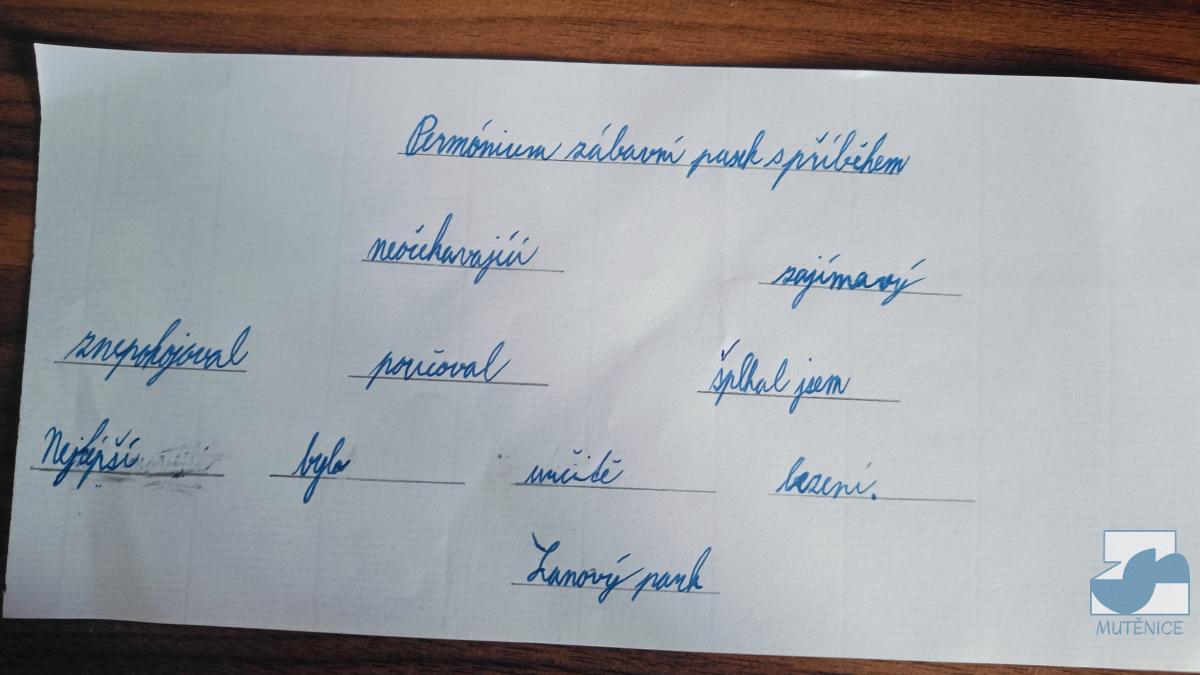 Permónium zábavní park s příběhem
neočekavající zajímavý
znepokojoval poučoval šplhal jsem
Nejlépší bylo určitě lezení.
Lanový park
MUTĚNICE